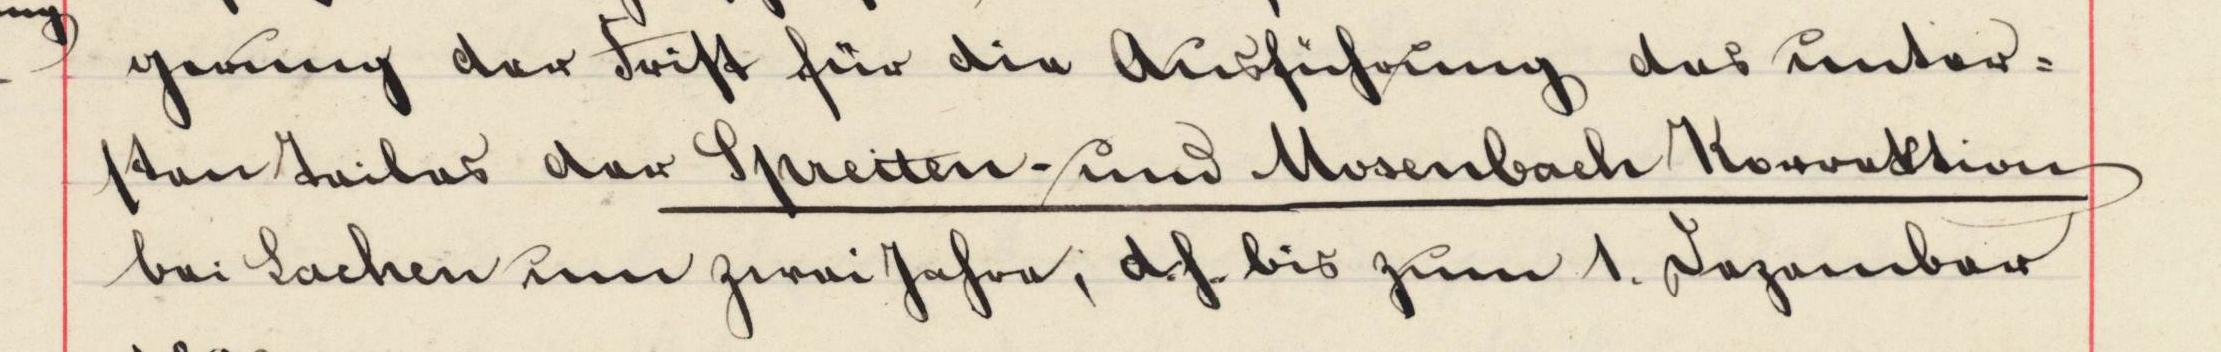 gerung der Frist für die Ausführung des unter=
sten Teiles der Spreiten- und Mosenbach Korrektion
bei Lachen um zwei Jahre, d. h. bis zum 1. Dezember